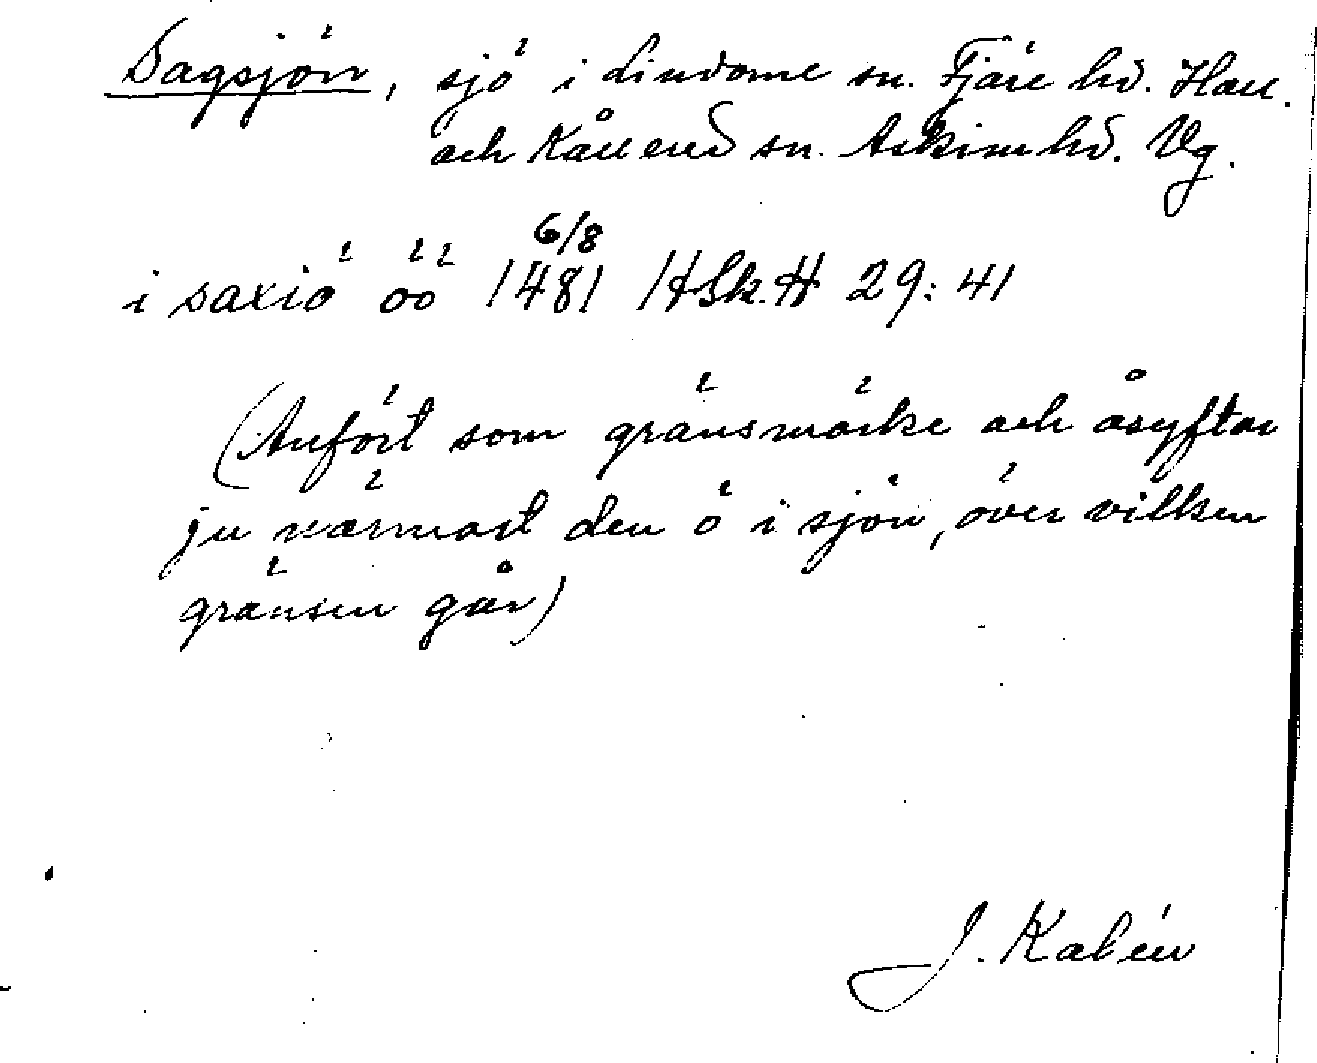 Sagsjön, sjö i Lindome sn. Fjäre hd. Hall.
och Kållered sn. Askim hd. Vg.
6/8
i saxiö öö 1481 HSk.H 29:41
(Anfört som gränsmärke och åsyftar
ju närmast den ö i sjön, över vilken
gränsen går)
J. Kalén